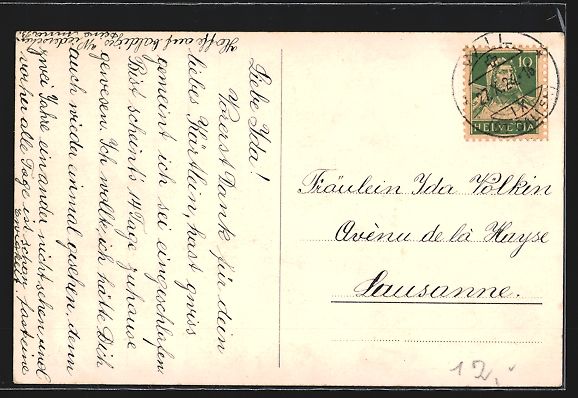 Liebe Ida!
Vorerst Dank für dein
liebes Kärtlein, hast gwiss
gemeint ich sei eingeschlafen
Bist scheint's 14 Tage zuhause
gewesen. Ich wollte, ich hätte Dich
auch wieder einmal gesehen, denn
zwei Jahre einander nicht sehen und
vorher alle Tage ist schon fast eine
Hoffe auf baldiges
10
HELVETIA
Fräulein Ida Völkin
Avènu de la Huyse
Lausanne.
12,-